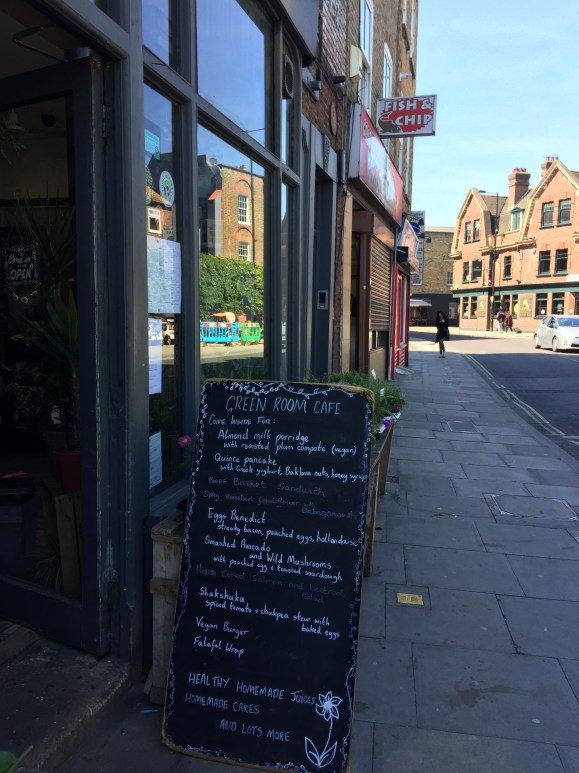 FISH &
CHIP
Come in
OPEN
GREEN ROOM CAFE
Come inside for:
Almond milk porridge
with roasted plum compote (vegan)
Quince pancake
with Greek yoghurt, Baklava nuts, honey syrup
Beef Brisket Sandwich
Spicy Roasted Cauliflower
Babaganoush
Eggs Benedict
streaky bacon, poached eggs, hollandaise
Smashed Avocado
and Wild Mushrooms
with poached egg & toasted sourdough
House Cured Salmon and Beetroot
Shakshuka
spiced tomato & chickpea stew with
baked eggs
Vegan Burger
Falafel Wrap
HEALTHY HOMEMADE JUICES
HOMEMADE CAKES
AND LOTS MORE